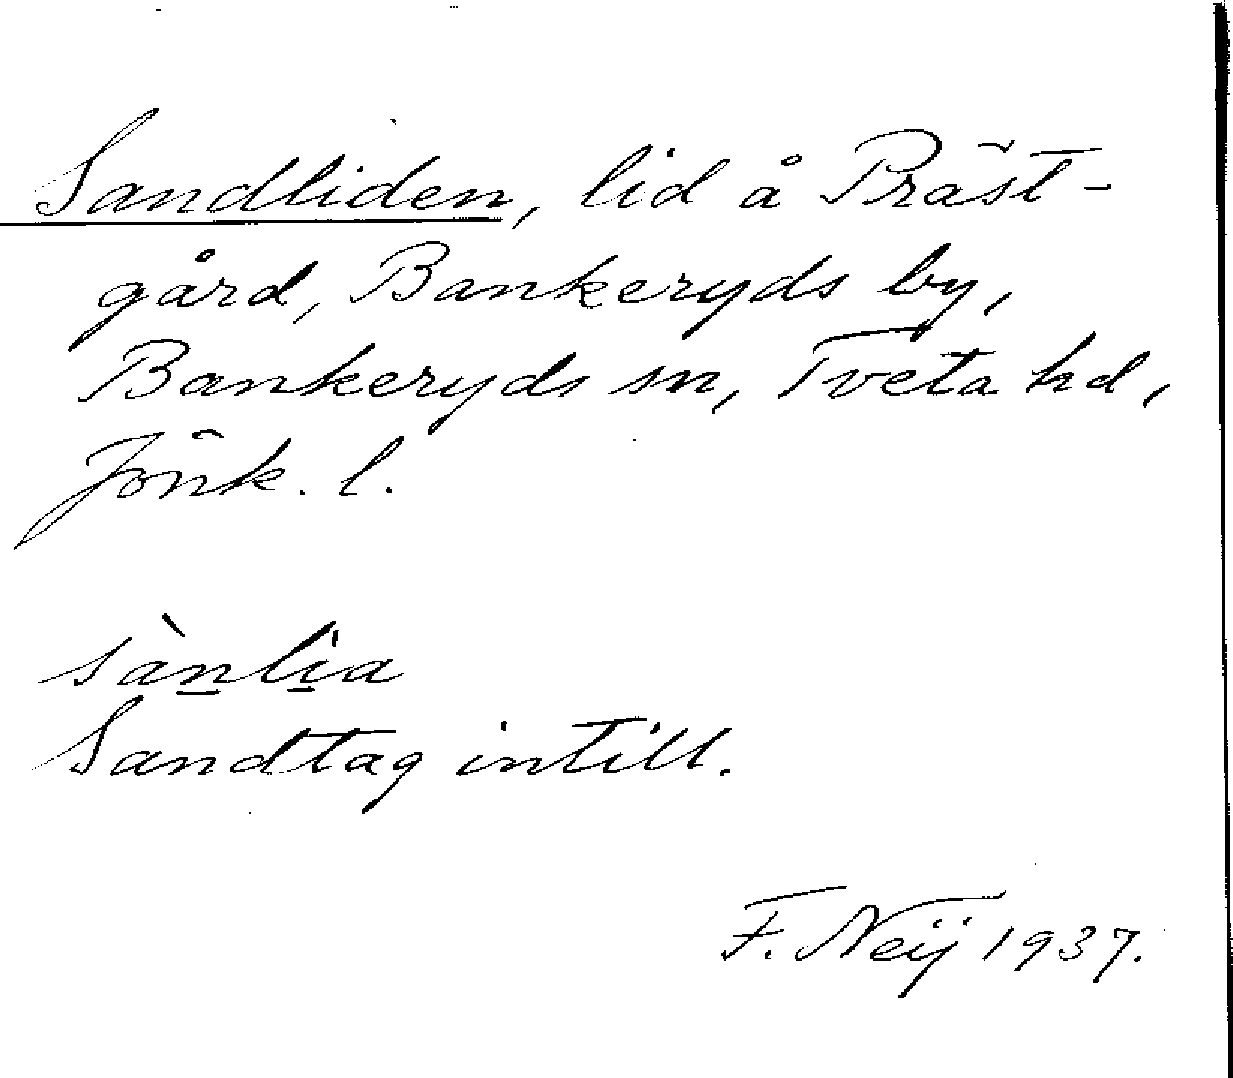 Sandliden, lid å Präst-
gård, Bankeryds by,
Bankeryds sn, Tveta hd,
Jönk. l.
sàn̲li̲a
Sandtag intill.
F. Neij 1937.